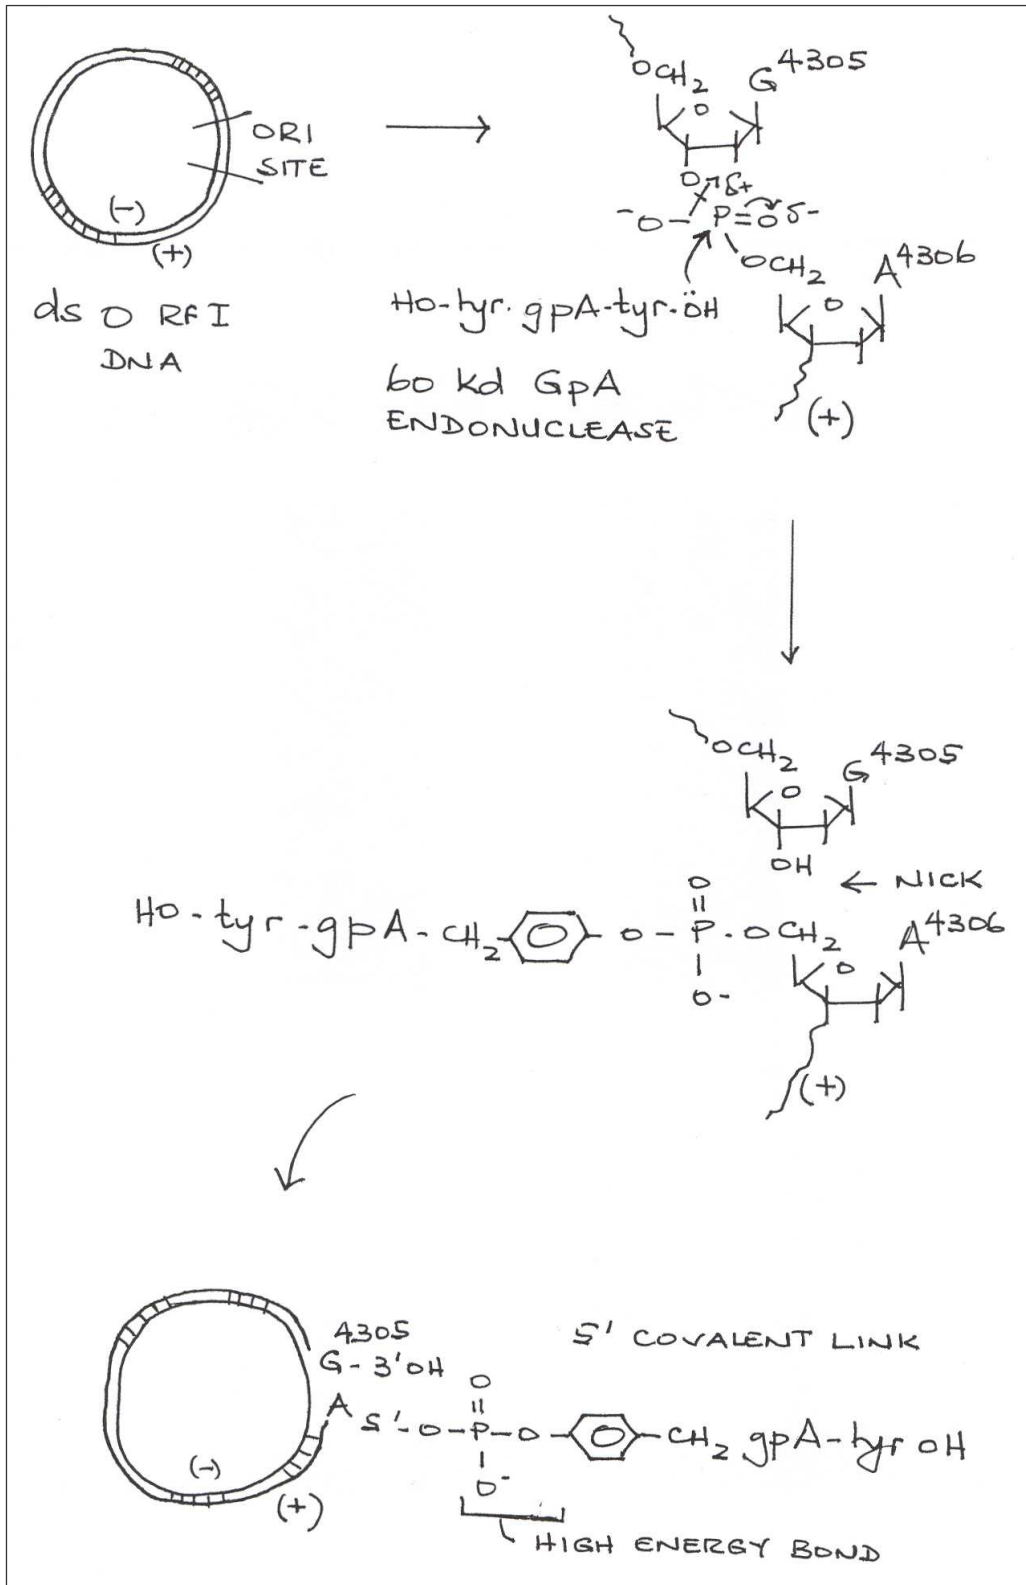 ORI
SITE
(-)
(+)
ds O RFI
DNA
OCH2 G4305
O
O δ+
-O- P=O δ-
OCH2 A4306
O
HO-tyr.gpA-tyr-ÖH
60 kd GpA
ENDONUCLEASE
(+)
OCH2 G4305
O
OH
← NICK
HO-tyr-gpA-CH2 -O-P-OCH2 A4306
O
O
O-
(+)
4305
G-3'OH
5' COVALENT LINK
O
A 5'-O-P-O- -CH2 gpA-tyr OH
O-
(-)
(+)
HIGH ENERGY BOND